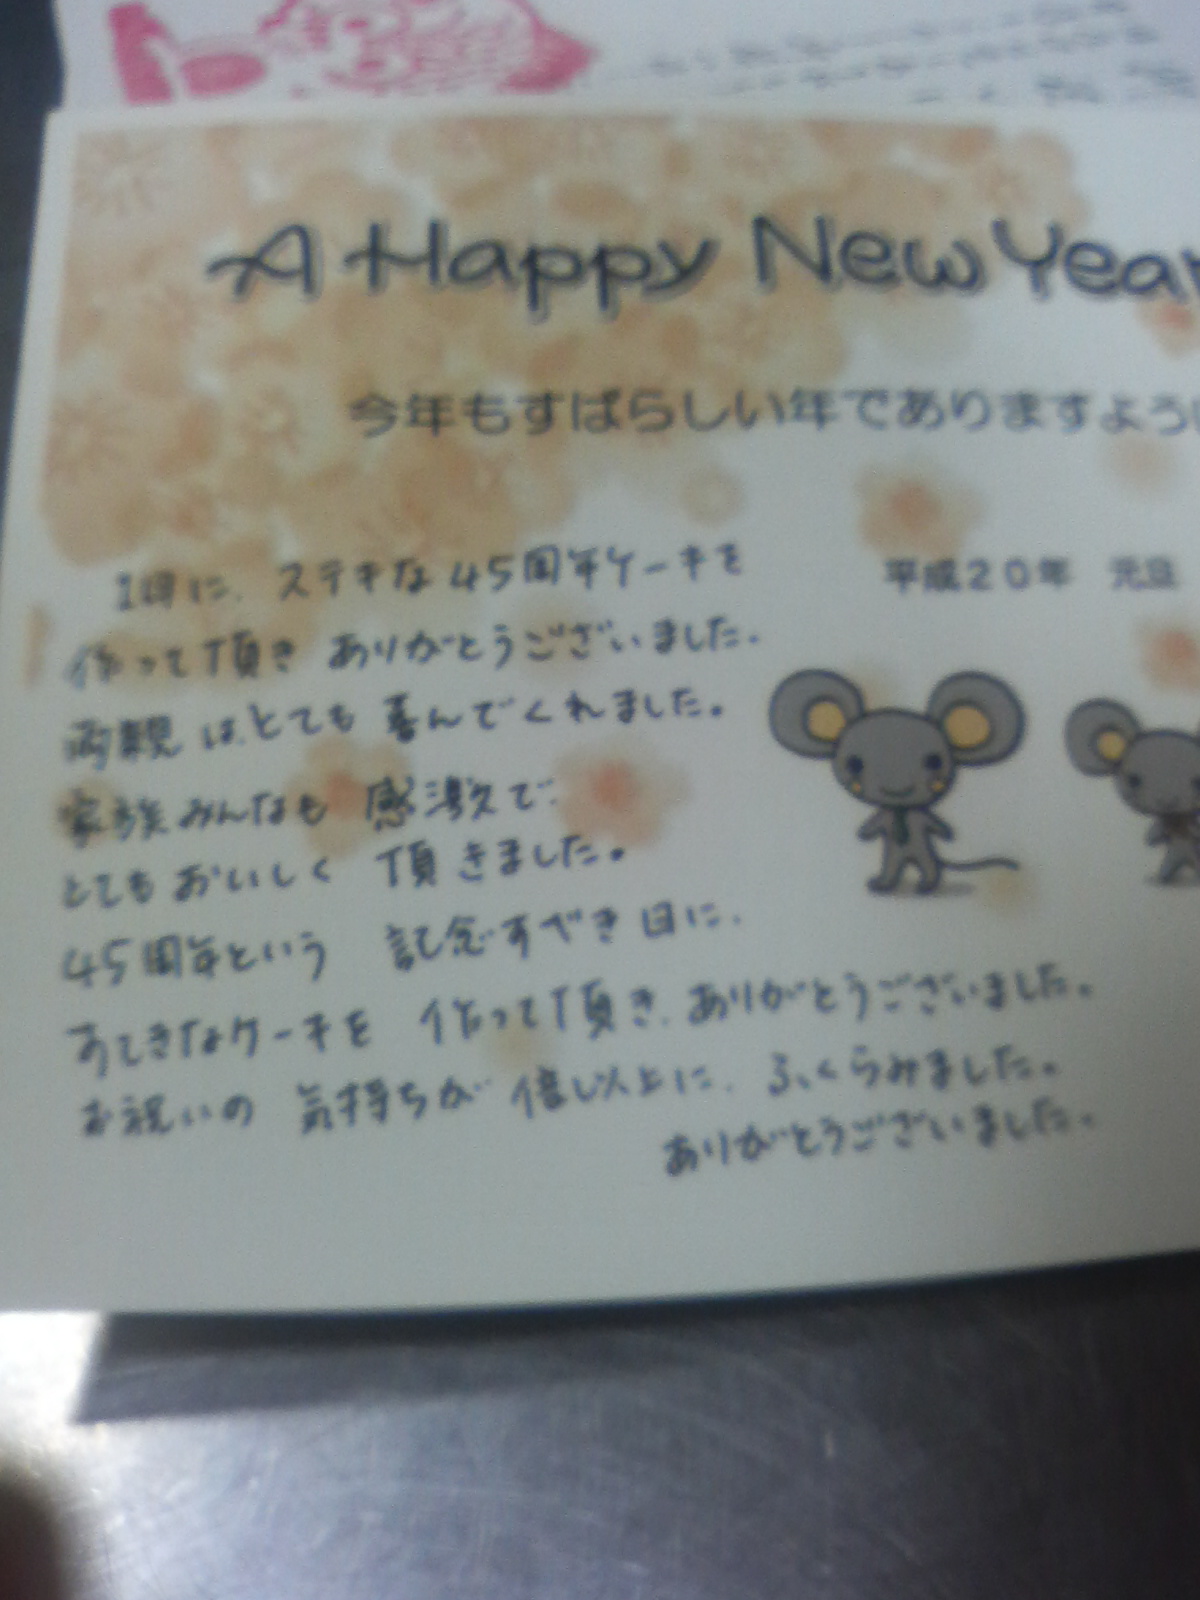 A Happy New Year
今年もすばらしい年でありますように
平成20年 元旦
1月に、ステキな45周年ケーキを
作って頂き ありがとうございました。
両親は、とても 喜んでくれました。
家族みんなも 感激で、
とてもおいしく 頂きました。
45周年という 記念すべき日に、
すてきなケーキを 作って頂き、ありがとうございました。
お祝いの 気持ちが 倍以上に、ふくらみました。
ありがとうございました。